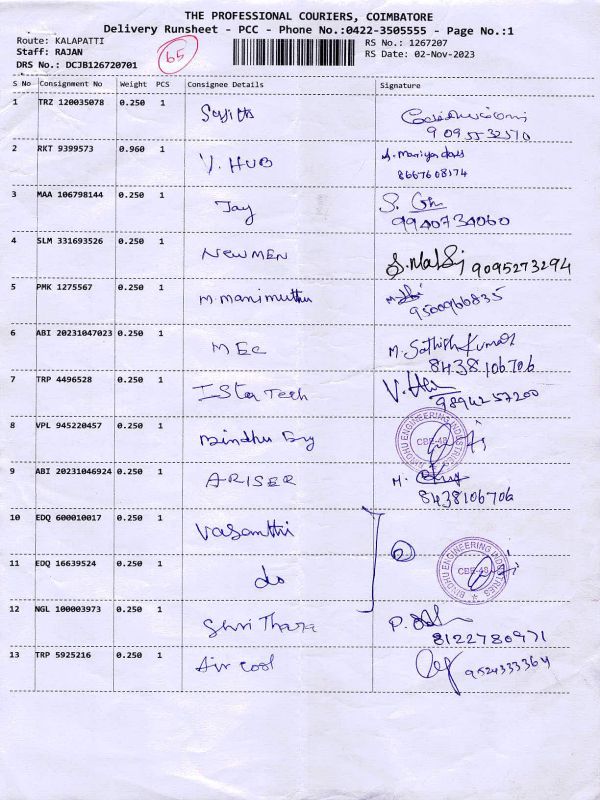 THE PROFESSIONAL COURIERS, COIMBATORE
Delivery Runsheet - PCC - Phone No.:0422-3505555 - Page No.:1
Route: KALAPATTI
Staff: RAJAN
DRS No.: DCJB126720701
65
RS No.: 1267207
RS Date: 02-Nov-2023
S No Consignment No Weight PCS Consignee Details Signature
1 TRZ 120035078 0.250 1 Sujith
9095532510
2 RKT 9399573 0.960 1 Y. HUB S. Mariya dass
8667608174
3 MAA 106798144 0.250 1 Jay S.
9940734060
4 SLM 331693526 0.250 1 NEWMEN 9095273294
5 PMK 1275567 0.250 1 M. Manimuthu
9500966835
6 ABI 20231047023 0.250 1 MEC M. Sathish Kumar
8438106706
7 TRP 4496528 0.250 1 IStar Tech V.
9894257200
8 VPL 945220457 0.250 1 Bindhu Eng BINDHU ENGINEERING INDUSTRIES CBE-48
9 ABI 20231046924 0.250 1 ARISER M.
8438106706
10 EDQ 600010017 0.250 1 Vasanthi
11 EDQ 16639524 0.250 1 do 2 BINDHU ENGINEERING INDUSTRIES CBE-48
12 NGL 100003973 0.250 1 Shri Thara P.
8122780971
13 TRP 5925216 0.250 1 Air cool 9524333364